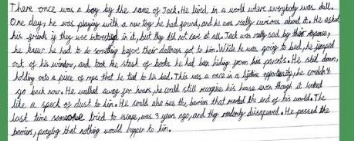 There once was a boy by the name of Jack. He lived in a world where everybody was dull.
One day, he was playing with a new toy he had found, and he was really curious about it. He asked
his friends if they were interested in it, but they did not care at all. Jack was really sad by their response,
he knew he had to do something before their dullness got to him. While he was going to bed, he jumped
out of his window, and took the stash of books he had been hiding from his parents. He slid down,
holding onto a piece of rope that he tied to his bed. This was a once in a lifetime opportunity, he couldn't
go back now. He walked away for hours, he could still recognise his house even though it looked
like a speck of dust to him. He could also see the barrier that marked the end of his world. The
last time someone tried to escape, was 3 years ago, and they suddenly disappeared. He passed the
barrier, praying that nothing would happen to him.